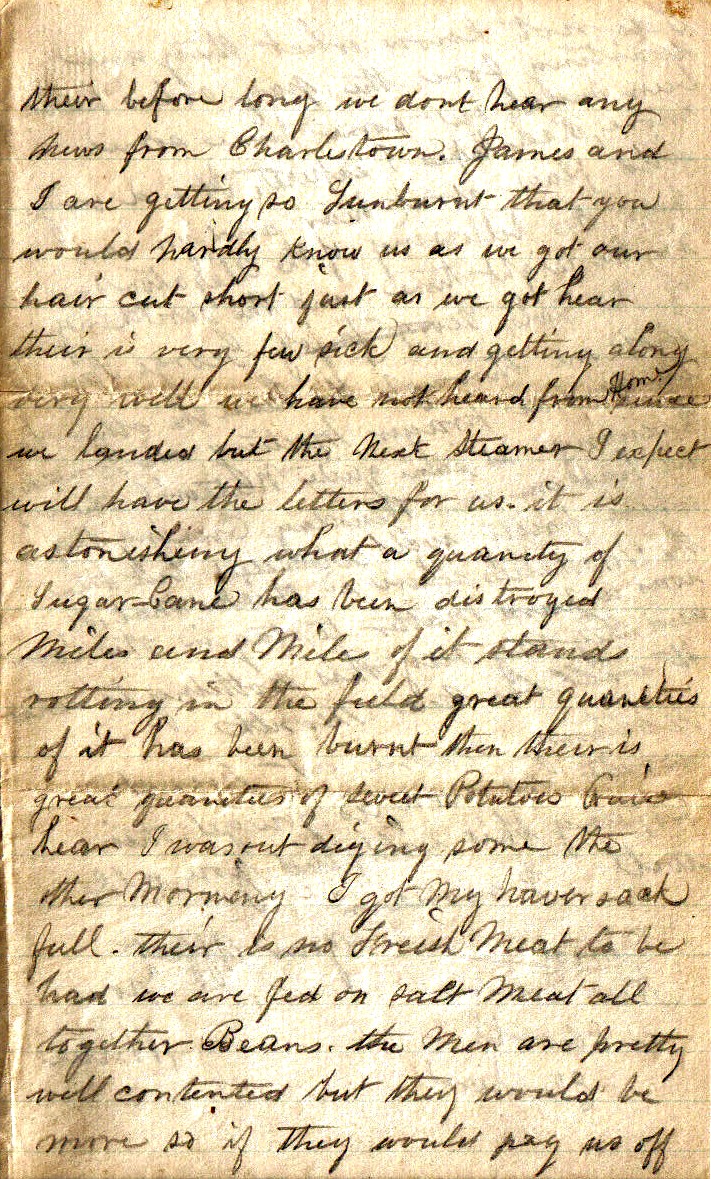 their before long we dont hear any
news from Charlestown. James and
I are getting so Sunburnt that you
would hardly know us as we got our
hair cut short just as we got hear
their is very few sick and getting along
very well we have not heard from Home since
we landed but the next Steamer I expect
will have the letters for us. it is
astonisheing what a quanity of
Sugar-Cane has been distroyed
Miles and Miles of it stands
rotting in the field great quaneties
of it has been burnt then their is
great quaneties of sweet Potatoes
hear I was out diging some the
other Morning I got My haversack
full. their is no Freish Meat to be
had we are fed on salt Meat all
together Beans. the Men are pretty
well contented but they would be
more so if they would pay us off